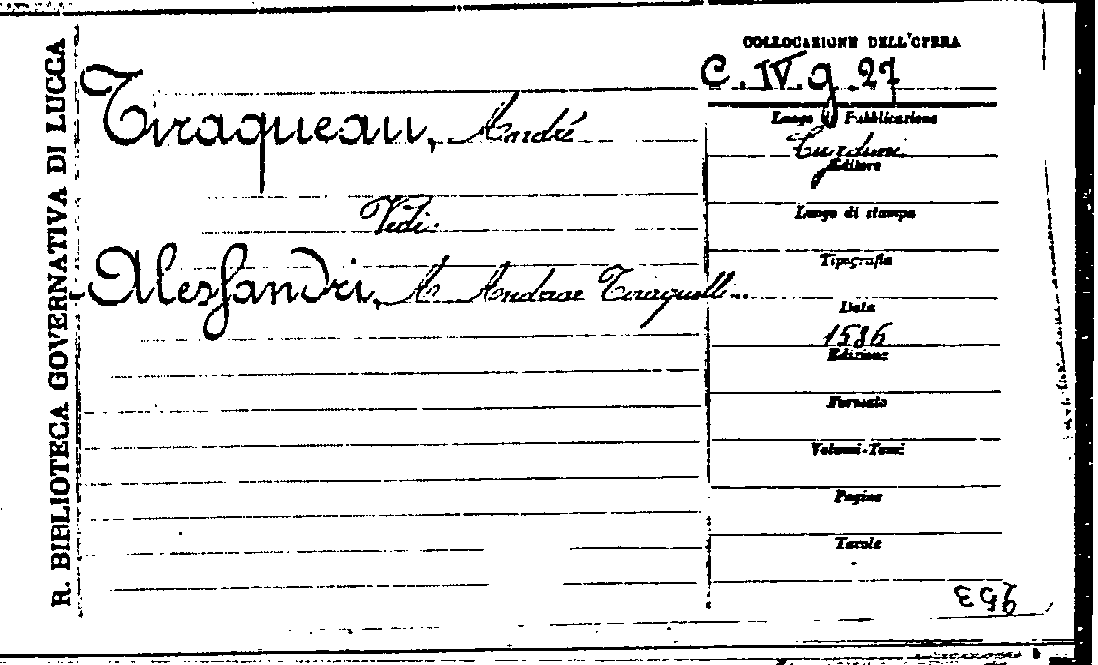 R. BIBLIOTECA GOVERNATIVA DI LUCCA
Tiraqueau, André
Vedi:
Alessandri,
COLLOCAZIONE DELL'OPERA
C. IV. g. 27
Luogo di Pubblicazione
Lugduni
Editore
Luogo di stampa
Tipografia
Data
1586
Edizione
Formato
Volumi-Tomi
Pagine
Tavole
253